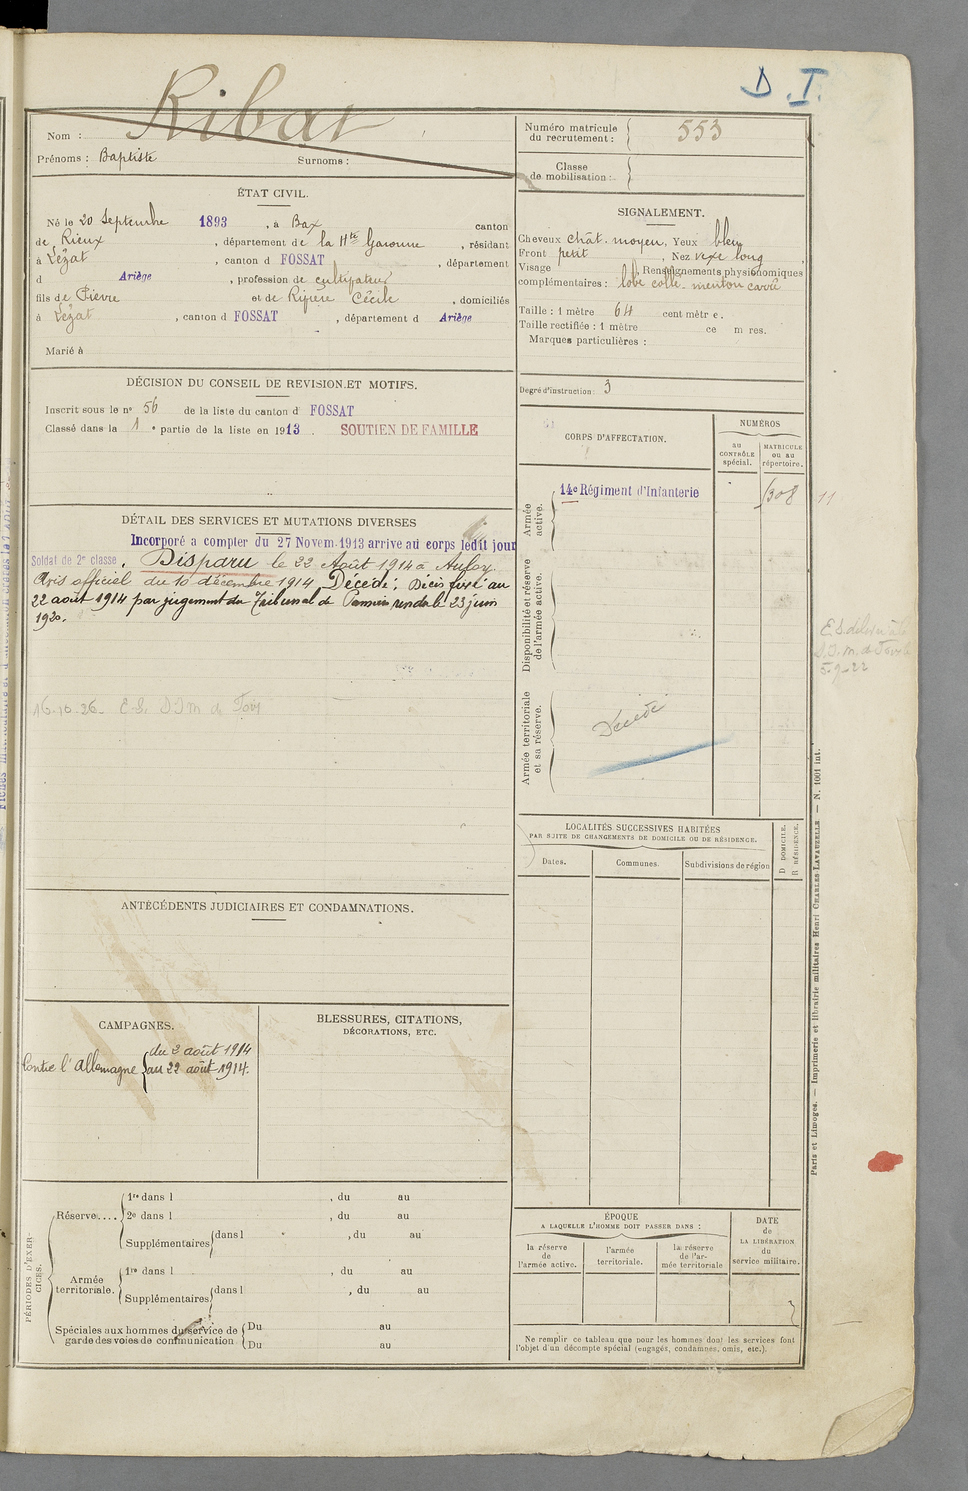 D.I.
Ribat
Nom :
Prénoms : Baptiste Surnoms :
Numéro matricule du recrutement : 553
Classe de mobilisation :
ÉTAT CIVIL.
Né le 20 Septembre 1893, à Bax canton
de Rieux, département de la Hte Garonne, résidant
à Lézat, canton d FOSSAT, département
d Ariège, profession de cultivateur
fils de Pierre et de Rivière Cécile, domiciliés
à Lézat, canton d FOSSAT, département d Ariège
Marié à
SIGNALEMENT.
Cheveux chât. moyen, Yeux bleu
Front petit, Nez vexe long
Visage , Renseignements physionomiques
complémentaires : lobe collé. menton carré
Taille : 1 mètre 64 centimètre.
Taille rectifiée : 1 mètre ce m res.
Marques particulières :
Degré d'instruction : 3
DÉCISION DU CONSEIL DE REVISION ET MOTIFS.
Inscrit sous le n° 56 de la liste du canton d FOSSAT
Classé dans la 1 e partie de la liste en 1913. SOUTIEN DE FAMILLE
DÉTAIL DES SERVICES ET MUTATIONS DIVERSES
Incorporé a compter du 27 Novem. 1913 arrive au corps ledit jour
Soldat de 2e classe. Disparu le 22 Août 1914 à
Avis officiel du 10 décembre 1914. Décédé. Décès fixé au
22 août 1914 par jugement du Tribunal de Pamiers rendu le 23 juin
1920.
16-10-26. E.S. D I M de Foix
CORPS D'AFFECTATION.
NUMÉROS
au CONTRÔLE spécial.
MATRICULE ou au répertoire.
Armée active.
14e Régiment d'Infanterie
Disponibilité et réserve de l'armée active.
Armée territoriale et sa réserve.
Décédé
11
E.S. délivré à la
D.I.M. de Foix le
5-9-22
LOCALITÉS SUCCESSIVES HABITÉES
PAR SUITE DE CHANGEMENTS DE DOMICILE OU DE RÉSIDENCE.
Dates. Communes. Subdivisions de région
D DOMICILE.
R RÉSIDENCE.
ANTÉCÉDENTS JUDICIAIRES ET CONDAMNATIONS.
CAMPAGNES.
Contre l'Allemagne du 2 août 1914
au 22 août 1914.
BLESSURES, CITATIONS,
DÉCORATIONS, ETC.
PÉRIODES D'EXERCICES.
Réserve....
1re dans l , du au
2e dans l , du au
Supplémentaires dans l , du au
Armée territoriale.
1re dans l , du au
Supplémentaires dans l , du au
Spéciales aux hommes du service de
garde des voies de communication
Du au
Du au
ÉPOQUE
A LAQUELLE L'HOMME DOIT PASSER DANS :
la réserve de l'armée active.
l'armée territoriale.
la réserve de l'armée territoriale
DATE de LA LIBÉRATION du service militaire.
Ne remplir ce tableau que pour les hommes dont les services font
l'objet d'un décompte spécial (engagés, condamnés, omis, etc.).
Paris et Limoges. — Imprimerie et librairie militaires Henri CHARLES-LAVAUZELLE. — N. 1001 int.